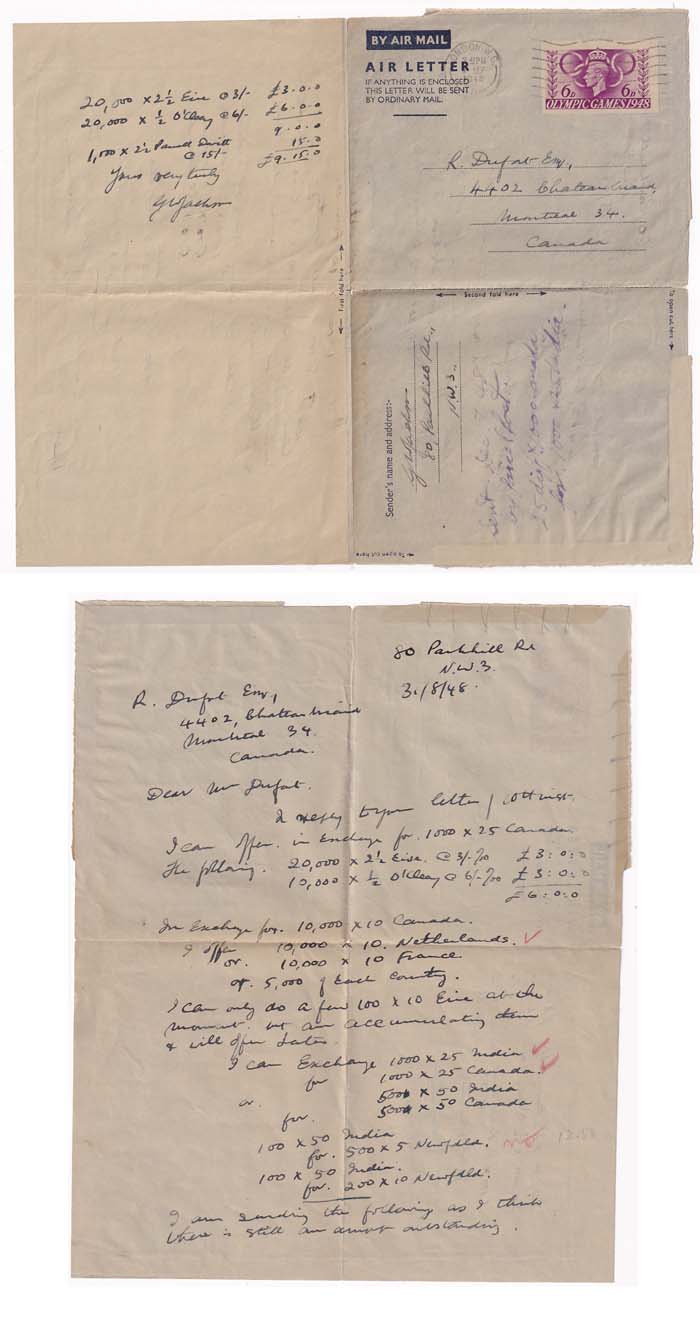 20,000 x 2½ Eire @ 3/- £3.0.0
20,000 x ½ O'Cleay @ 6/- £6.0.0
9.0.0
1,000 x 2½ @ 15/- 15.0
£9.15.0
Yours very truly
GWJackson
BY AIR MAIL
AIR LETTER
IF ANYTHING IS ENCLOSED
THIS LETTER WILL BE SENT
BY ORDINARY MAIL.
LONDON
6D 6D
OLYMPIC GAMES 1948
R. Dufort Esq,
4402 Chateaubriand,
Montreal 34.
Canada
First fold here
Second fold here
To open cut here
Sender's name and address:-
GWJackson
80, Parkhill Rd.,
N.W.3.
To open cut here
80 Parkhill Rd
N.W.3.
R. Dufort Esq,
4402, Chateaubriand
Montreal 34.
Canada.
Dear Mr Dufort.
In reply to your letter / 10th inst.
I can offer in Exchange for 1000 x 25 Canada
the following. 20,000 x 2½ Eire. @ 3/- £3:0:0
10,000 x ½ O'Cleay @ 6/- £3:0:0
£6:0:0
In Exchange for 10,000 x 10 Canada.
I offer 10,000 x 10. Netherlands.
or. 10,000 x 10 France
or. 5,000 of Each Country.
I can only do a few 100 x 10 Eire at the
moment. but am accumulating them
& will offer later.
I can Exchange 1000 x 25 India
for 1000 x 25 Canada.
or. 500 x 50 India
for. 500 x 50 Canada
100 x 50 India
for. 500 x 5 Newfdld.
100 x 50 India.
for. 200 x 10 Newfdld.
I am sending the following as I think
there is still an amount outstanding.